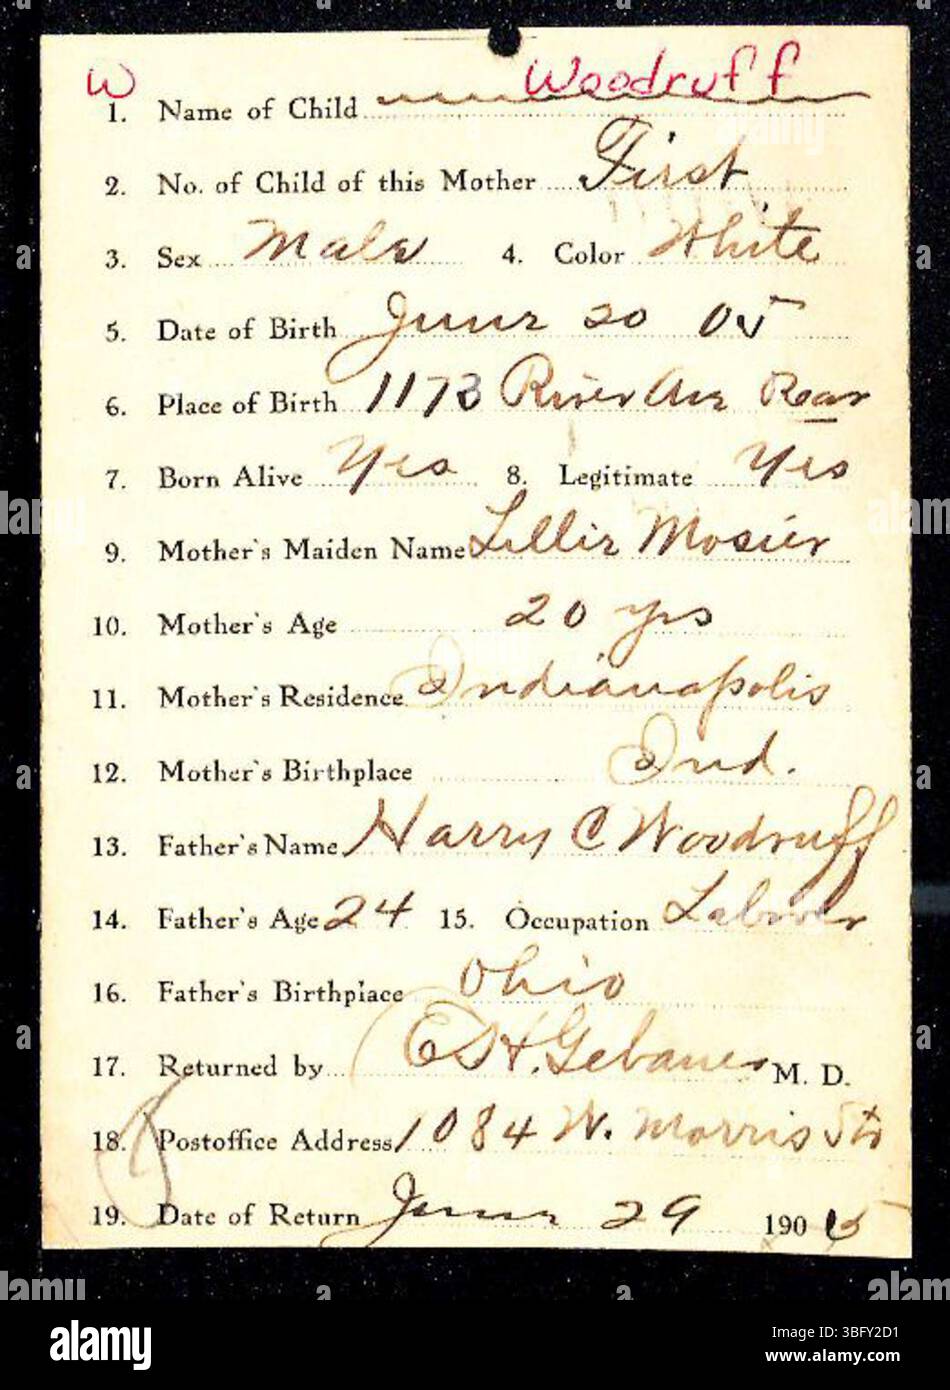 W Woodruff
1. Name of Child
2. No. of Child of this Mother First
3. Sex Male 4. Color White
5. Date of Birth June 20 05
6. Place of Birth 1173 River Ave Rear
7. Born Alive Yes 8. Legitimate Yes
9. Mother's Maiden Name Lillie Mosier
10. Mother's Age 20 yrs
11. Mother's Residence Indianapolis
12. Mother's Birthplace Ind.
13. Father's Name Harry C Woodruff
14. Father's Age 24 15. Occupation Laborer
16. Father's Birthplace Ohio
17. Returned by M. D.
18. Postoffice Address 1084 W. Morris St
19. Date of Return June 29 1905
alamy
Image ID: 3BFY2D1
www.alamy.com